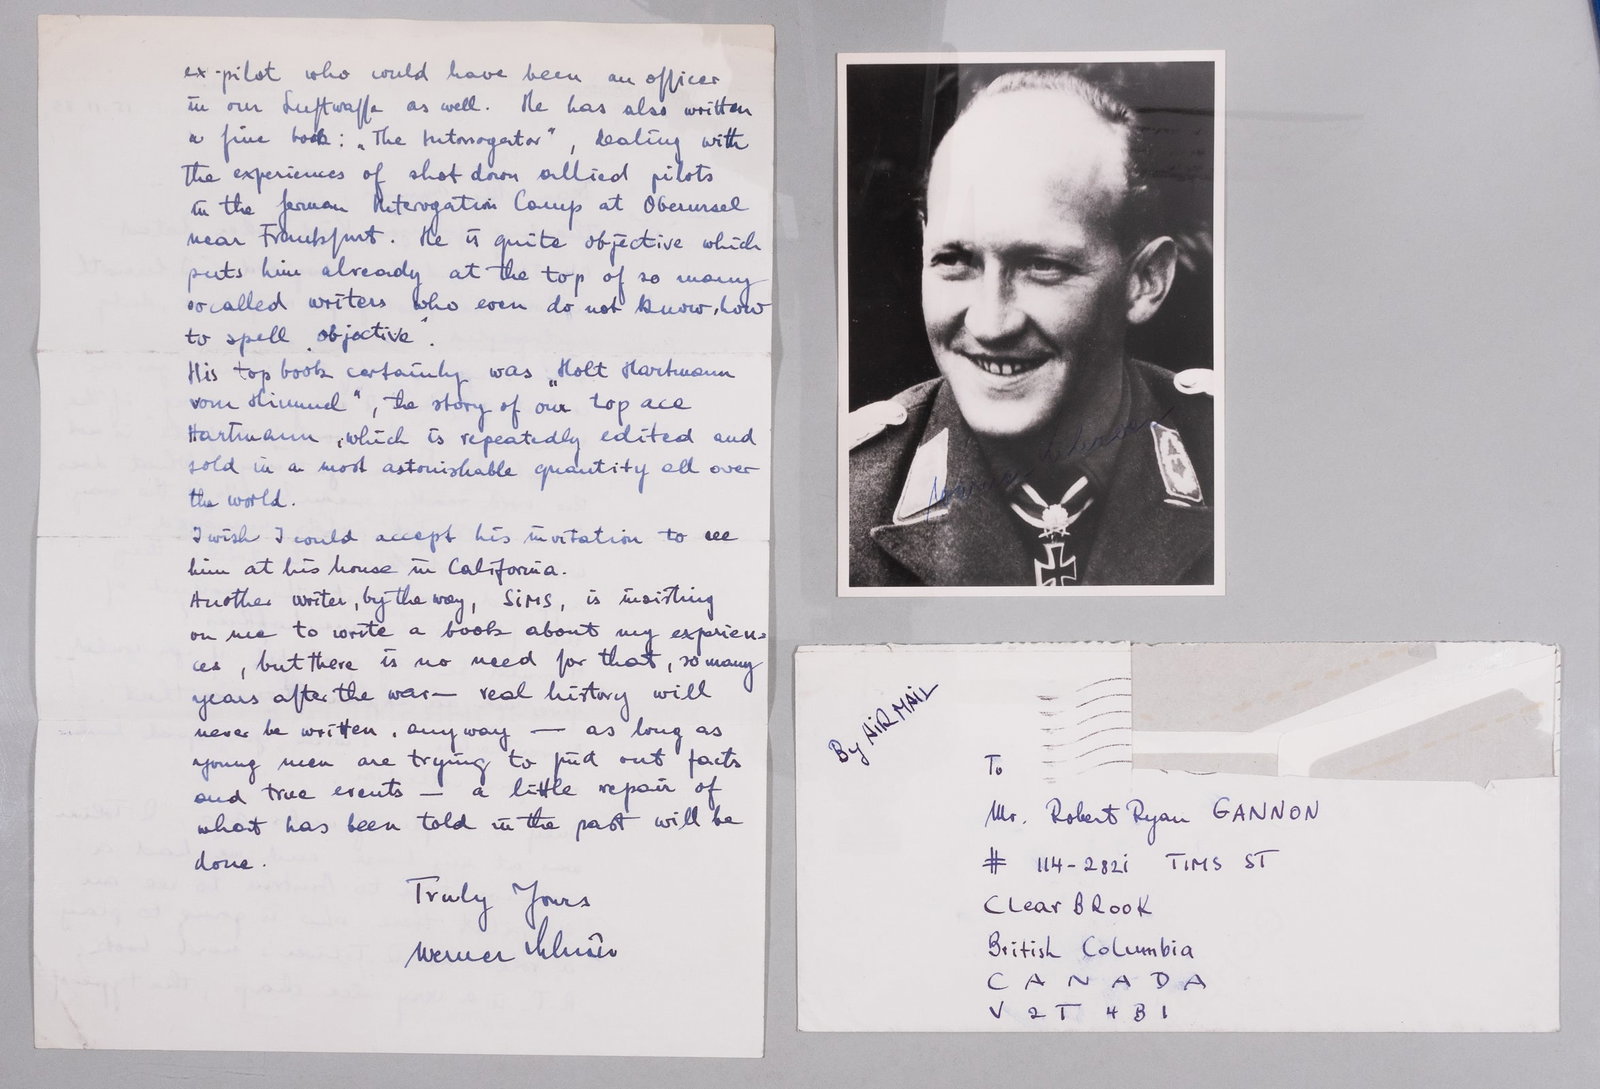 ex-pilot who would have been an officer
in our Luftwaffe as well. He has also written
a fine book: „The Interrogator", dealing with
the experiences of shot down allied pilots
in the german Interogation Camp at Oberursel
near Frankfurt. He is quite objective which
puts him already at the top of so many
so called writers who even do not know, how
to spell „objective".
His top book certainly was „Holt Hartmann
vom Himmel", the story of our top ace
Hartmann, which is repeatedly edited and
sold in a most astonishable quantity all over
the world.
I wish I could accept his invitation to see
him at his house in California.
Another writer, by the way, SIMS, is insisting
on me to write a book about my experien=
ces, but there is no need for that, so many
years after the war — real history will
never be written, anyway — as long as
young men are trying to find out facts
and true events — a little repair of
what has been told in the past will be
done.
Truly Yours
Werner
By AIR MAIL
To
Mr. Robert Ryan GANNON
# 114-2821 TIMS ST
Clear BROOK
British Columbia
CANADA
V2T 4B1